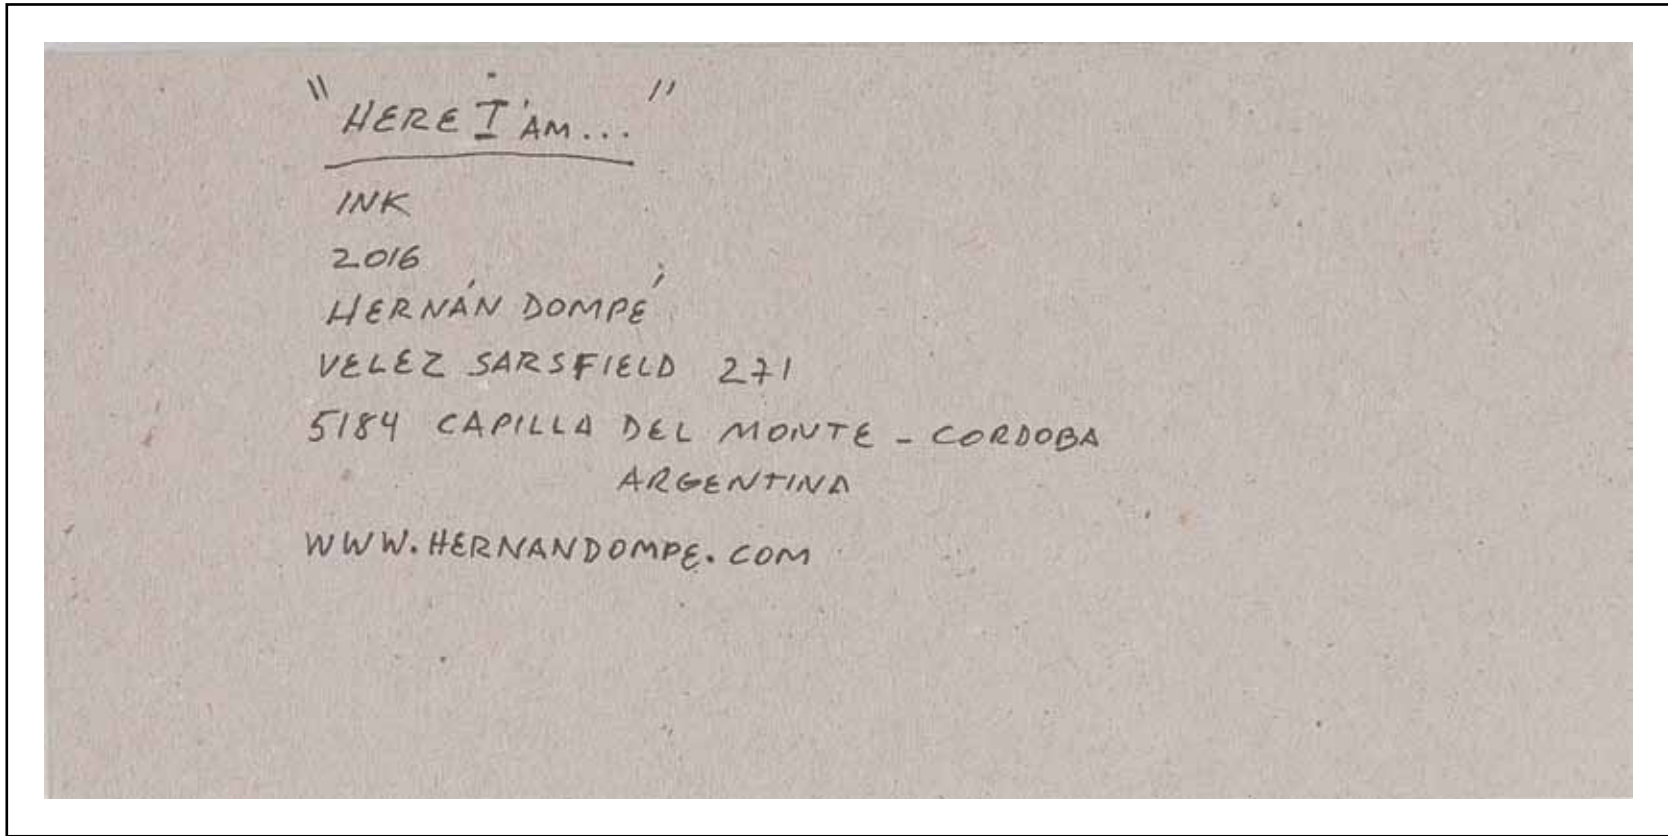 "HERE I'AM..."
INK
2016
HERNÁN DOMPÉ
VELEZ SARSFIELD 271
5184 CAPILLA DEL MONTE - CORDOBA
ARGENTINA
WWW.HERNANDOMPE.COM